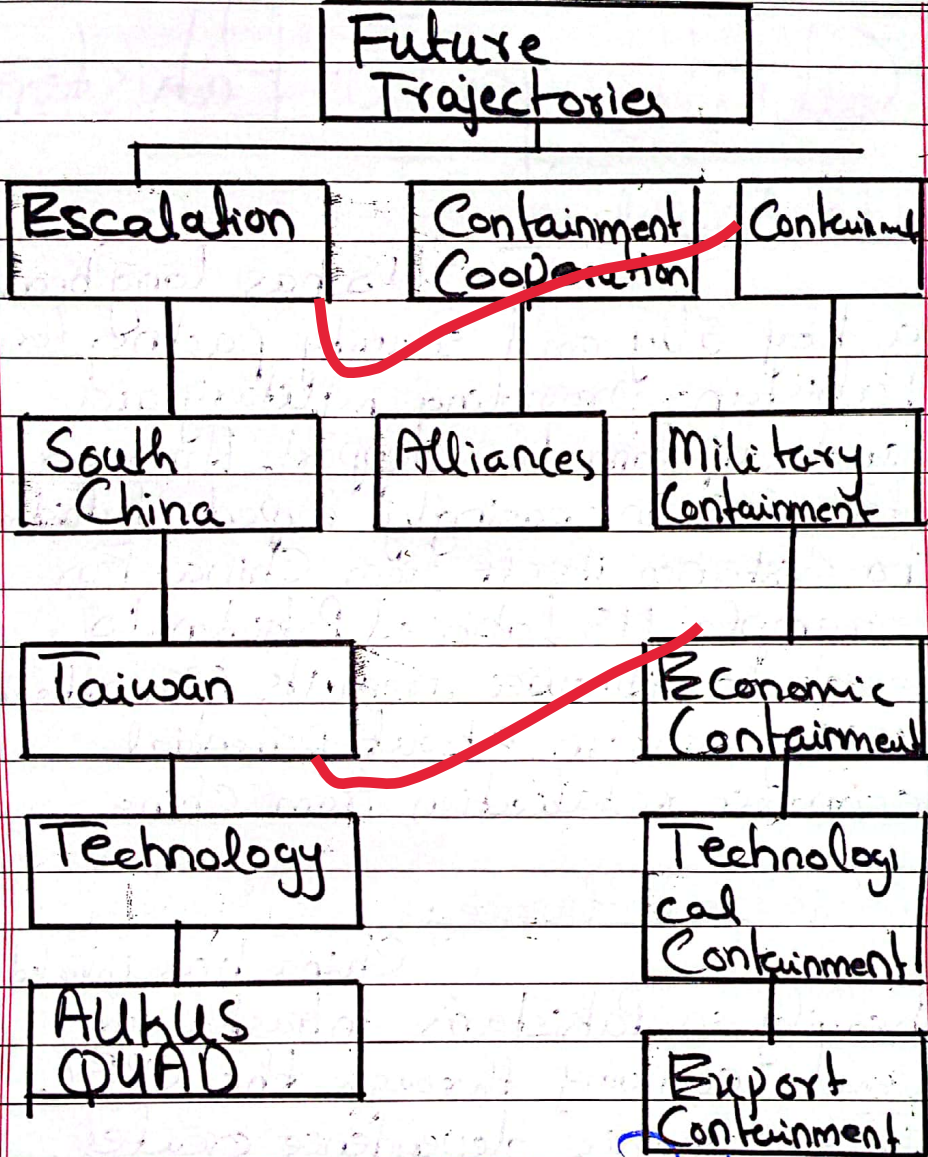 Future
Trajectories
Escalation
Containment
Cooperation
Containment
South
China
Alliances
Military
Containment
Taiwan
Economic
Containment
Technology
Technologi
cal
Containment
AUKUS
QUAD
Export
Containment